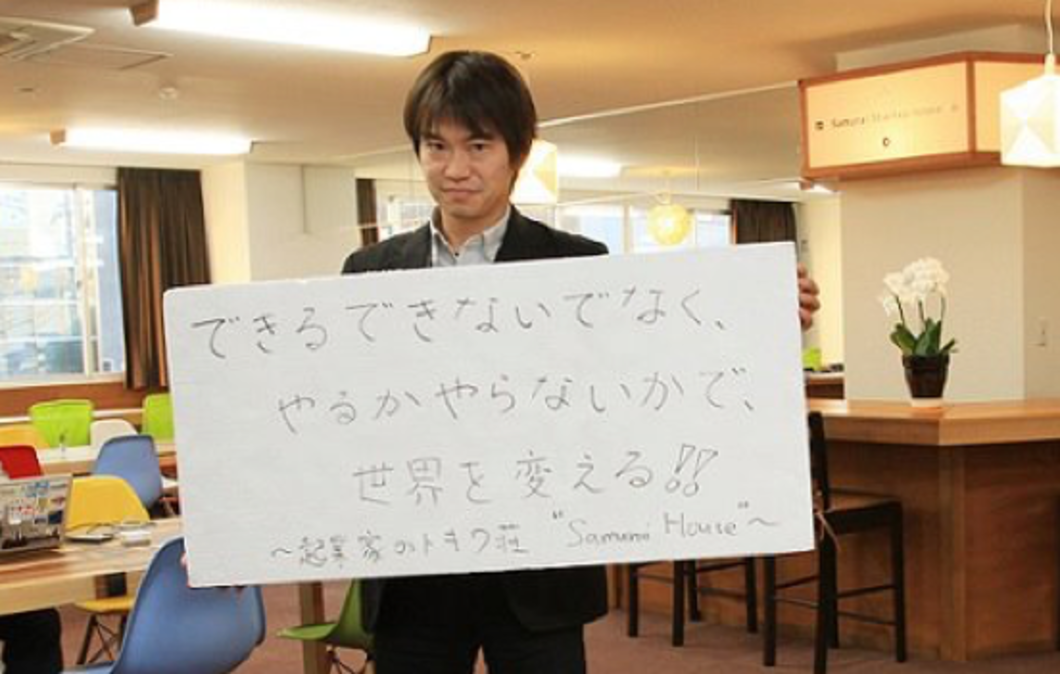 できるできないでなく、
やるかやらないかで、
世界を変える!!
～起業家のトキワ荘 "Samurai House"～
Samurai Startup House